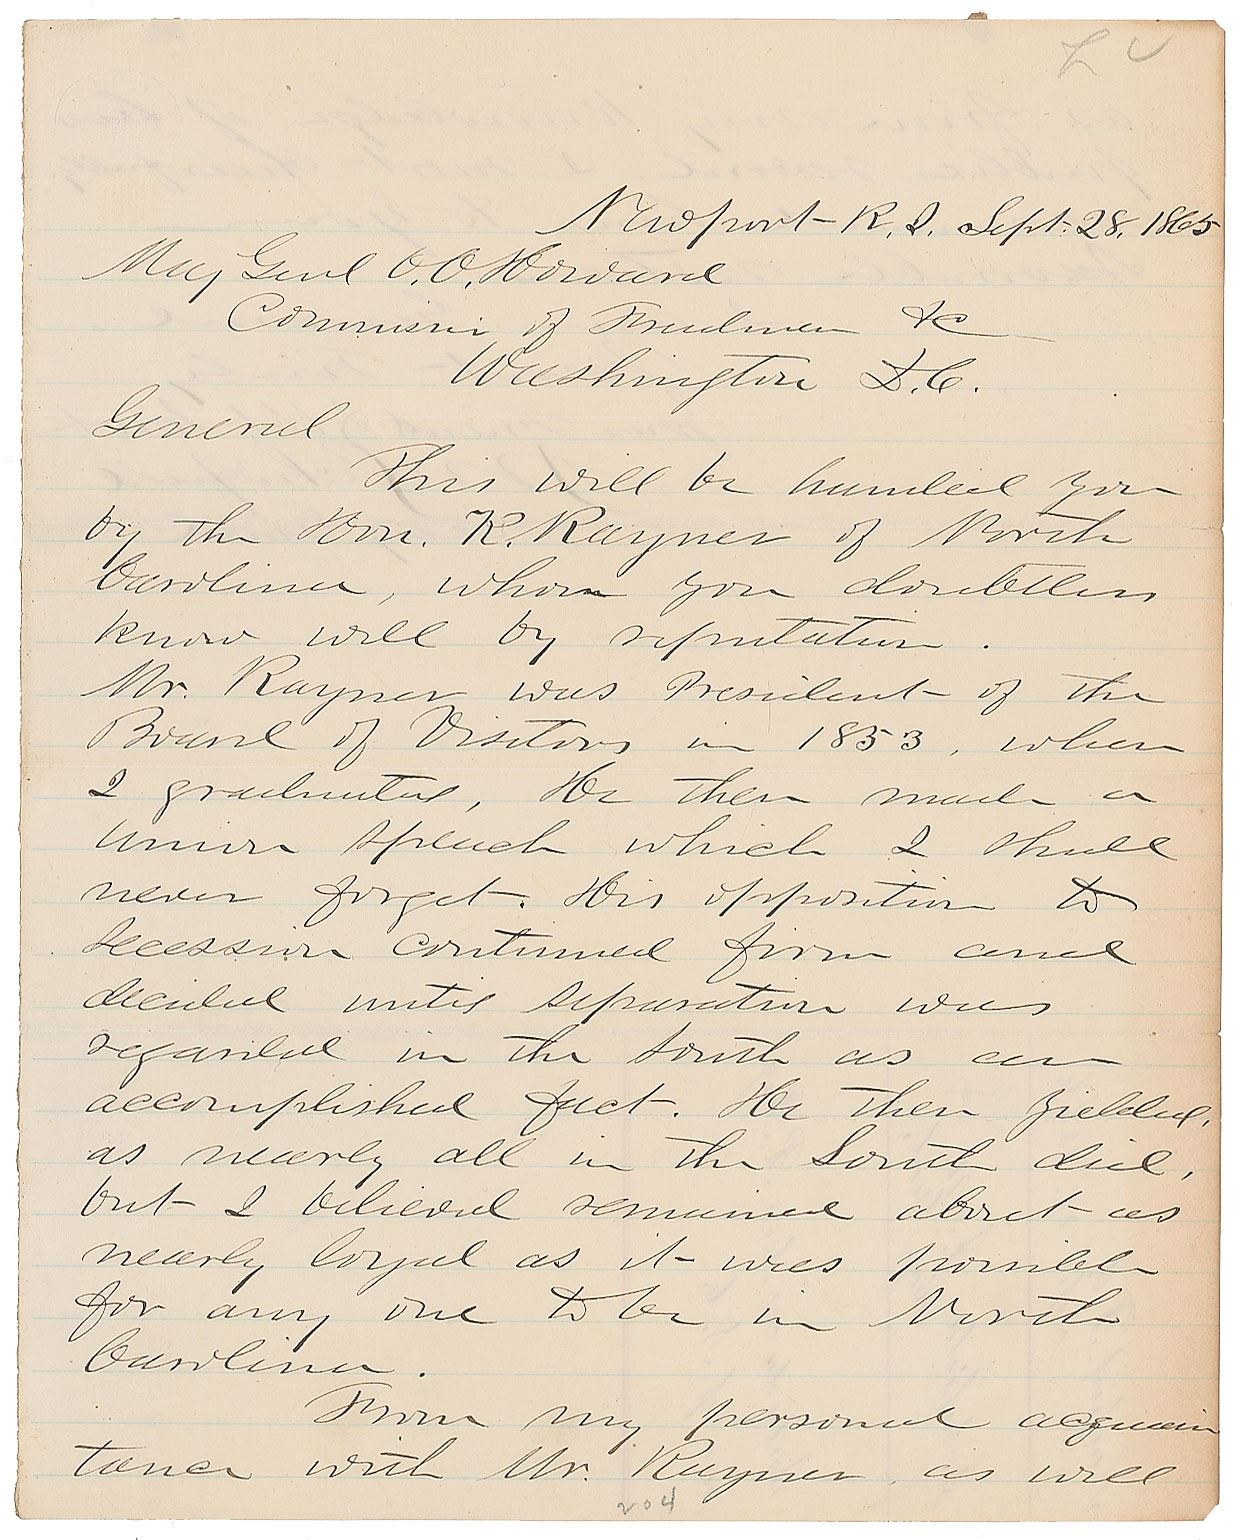 L
Newport R.I. Sept. 28. 1865
Maj Genl O.O. Howard
Commissir of Freedmen &c
Washington D.C.
General
This will be handed you
by the Hon. K. Rayner of North
Carolina, whom you doubtless
know well by reputation.
Mr. Rayner was President of the
Board of Visitors in 1853, when
I graduated, He then made a
union speech which I shall
never forget. His opposition to
secession continued firm and
decided until separation was
regarded in the South as an
accomplished fact. He then yielded,
as nearly all in the South did,
but I believed remained about as
nearly loyal as it was possible
for any one to be in North
Carolina.
From my personal acquain
tance with Mr. Rayner as well
204